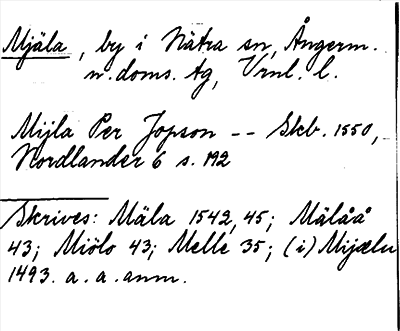 Mjäla, by i Nätra sn, Ångerm.
n. doms. tg, Vrnl. l.
Mijla Per Jopson -- Skb. 1550,
Nordlander 6 s. 192
Skrives: Mäla 1542, 45; Mälåå
43; Miölo 43; Melle 35; (i) Mijælu
1493. a. a. anm.